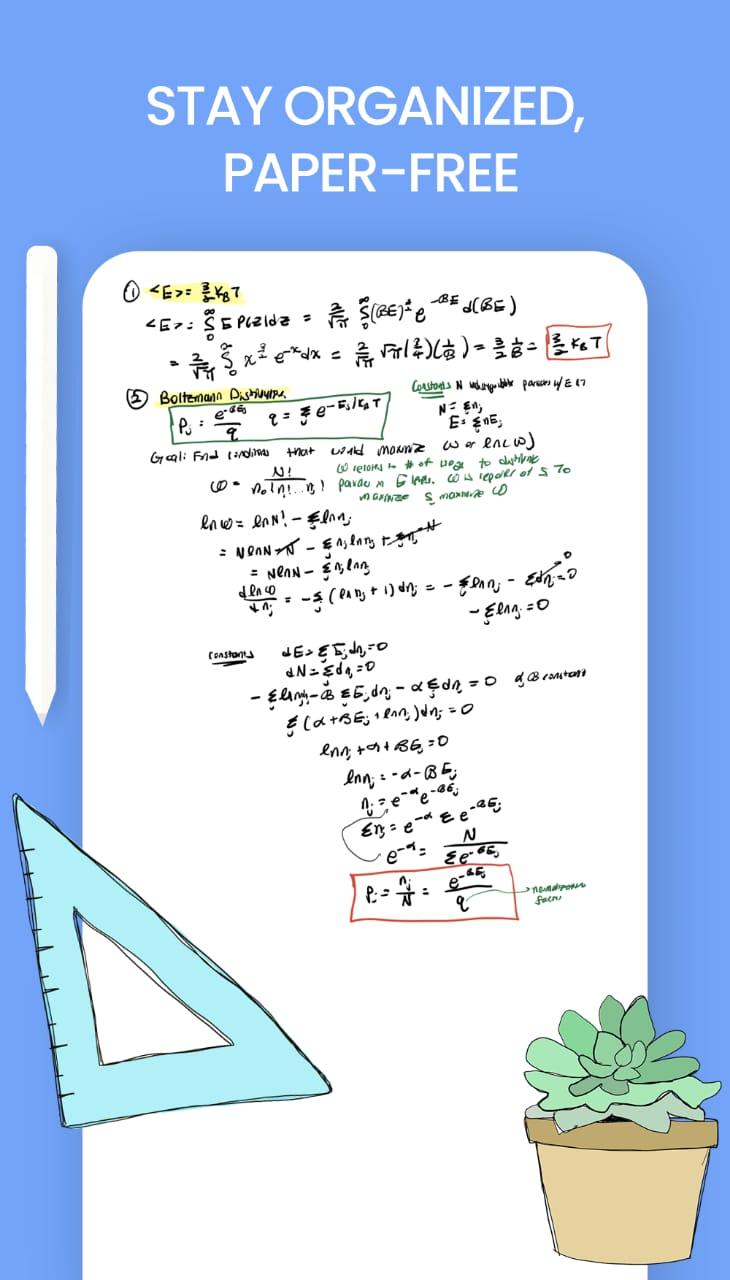 STAY ORGANIZED,
PAPER-FREE
① <E> = 3/2 K_B T
<E> = ∫₀^∞ E P(E)dE = 2/√π ∫₀^∞ (βE)^½ e^-βE d(βE)
= 2/√π ∫₀^∞ x^(3/2) e^-x dx = 2/√π √π(3/4)(1/β) = 3/2 1/β = 3/2 K_B T
② Boltzmann Distribution.
Constants N indistinguishable particles w/ E
P_j = e^-βE_j / q q = Σ e^-E_j/K_B T
N = Σn_j
E = Σ n E_j
Goal: Find conditions that would maximize ω or ln(ω)
ω = N! / n₀! n₁! ... n_j!
ω relates to # of ways to distribute
particles in E levels. ω is of S To
maximize S maximize ω
ln ω = ln N! - Σ ln n_j
= N ln N - N - Σ n_j ln n_j + Σ n_j N
= N ln N - Σ n_j ln n_j
d ln ω / d n_j = - Σ (ln n_j + 1) dn_j = - Σ ln n_j - Σ dn_j = 0 0
- Σ ln n_j = 0
constants dE = Σ E_j dn_j = 0
dN = Σ dn_j = 0
- Σ ln n_j - β Σ E_j dn_j - α Σ dn_j = 0 α β constant
Σ (α + βE_j + ln n_j) dn_j = 0
ln n_j + α + βE_j = 0
ln n_j = -α - βE_j
n_j = e^-α e^-βE_j
Σn_j = e^-α Σ e^-βE_j
e^-α = N / Σ e^-βE_j
P_j = n_j / N = e^-βE_j / q
normalization
factor